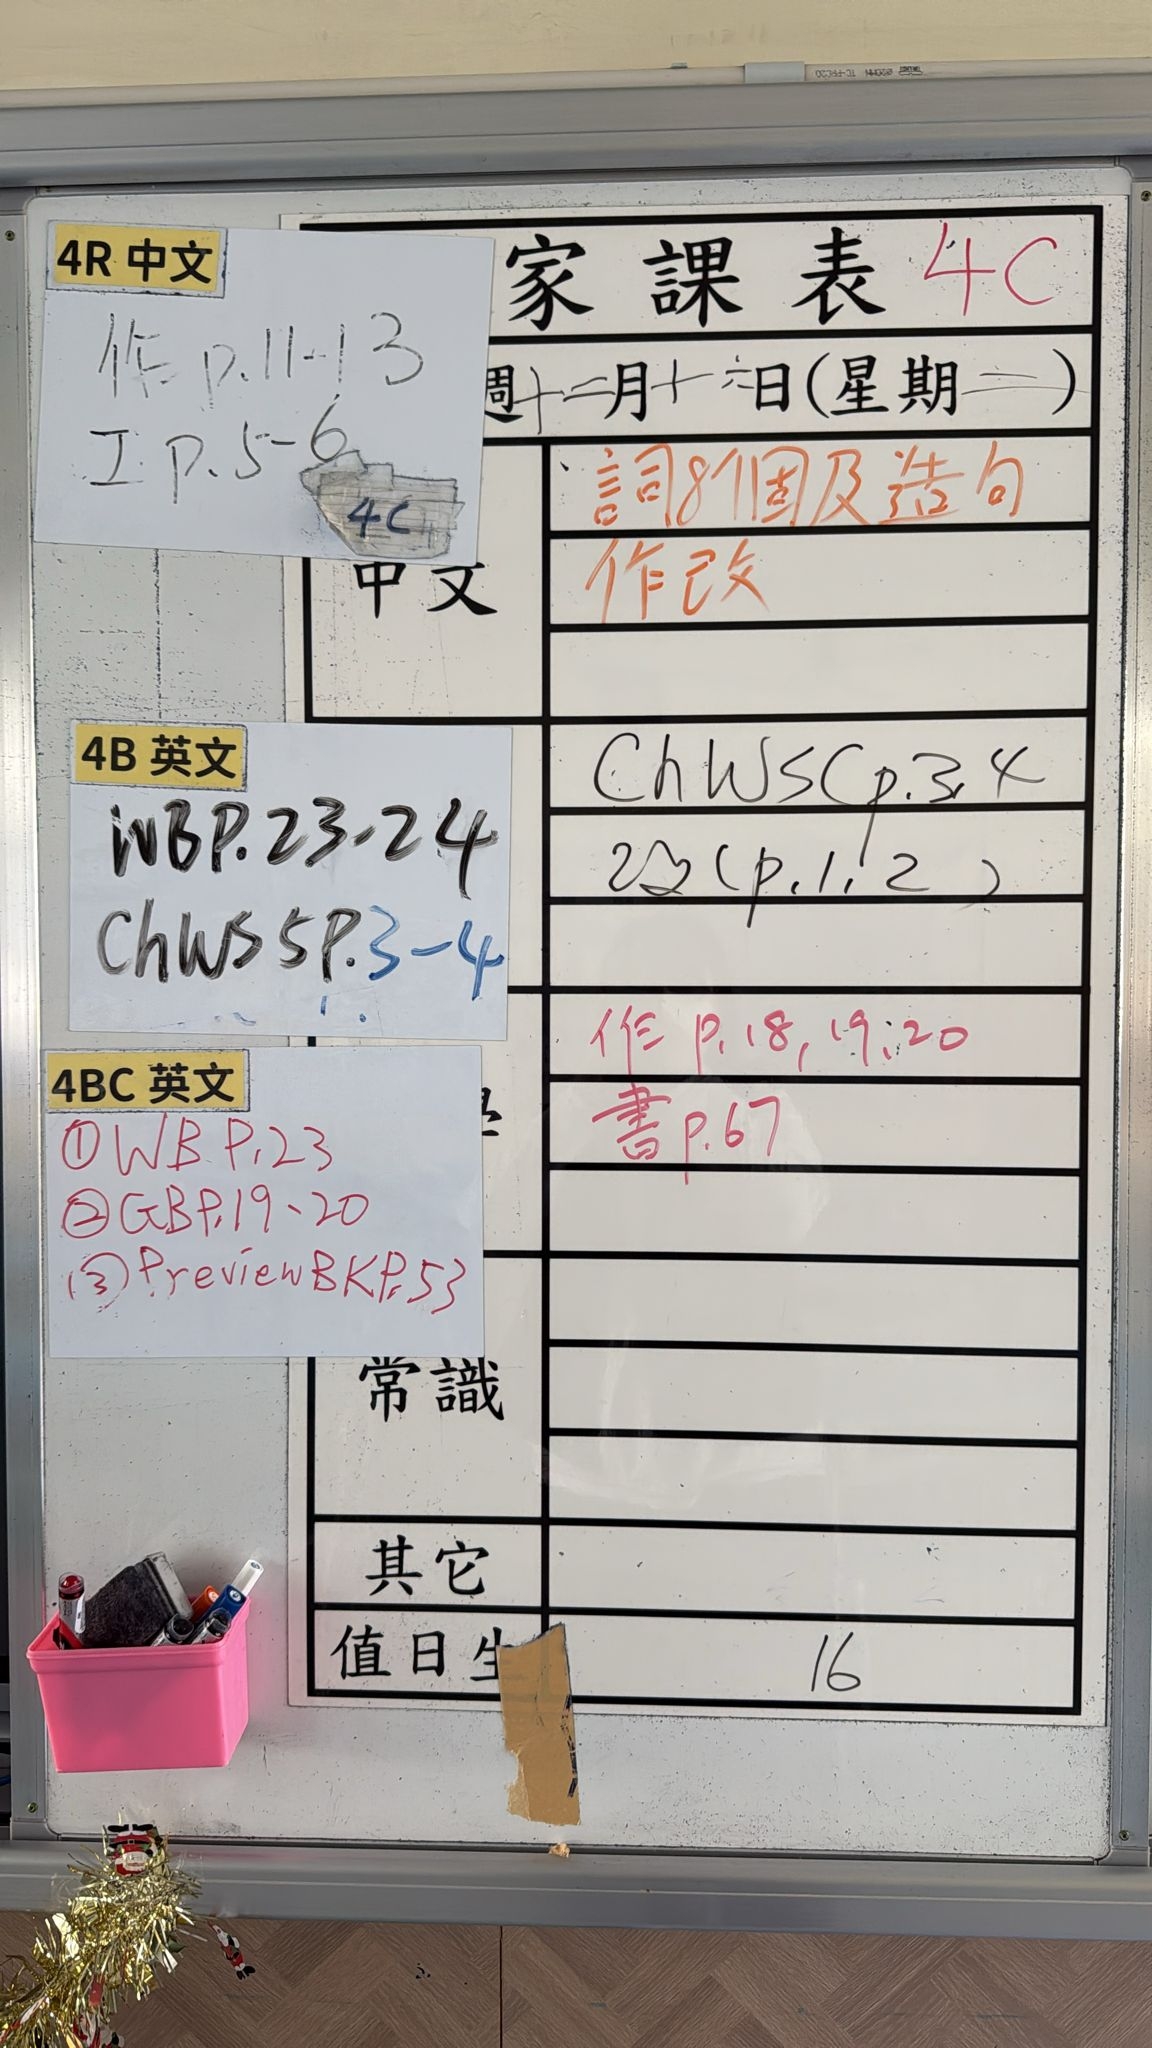 4R 中文
作 p.11-13
工 p.5-6
4C
家課表 4C
週十二月十六日(星期一)
中文
詞8個及造句
作改
4B 英文
WBP.23-24
ChWS5P.3-4
ChWS(p.3,4
改(p.1,2)
4BC 英文
①WB P.23
②GBP.19-20
③PreviewBKP.53
作 p.18,19,20
書p.67
常識
其它
值日生 16